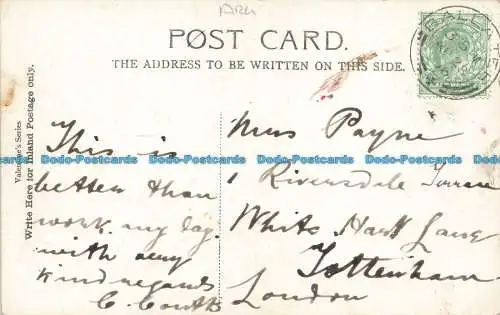 POST CARD.
THE ADDRESS TO BE WRITTEN ON THIS SIDE.
Valentine's Series
Write Here for Inland Postage only.
This is
better than
work my day.
with very
kind regards
Mrs Payne
1 Riversdale Terrace
White Hart Lane
Tottenham
London
Dodo-Postcards Dodo-Postcards Dodo-Postcards Dodo-Postcards